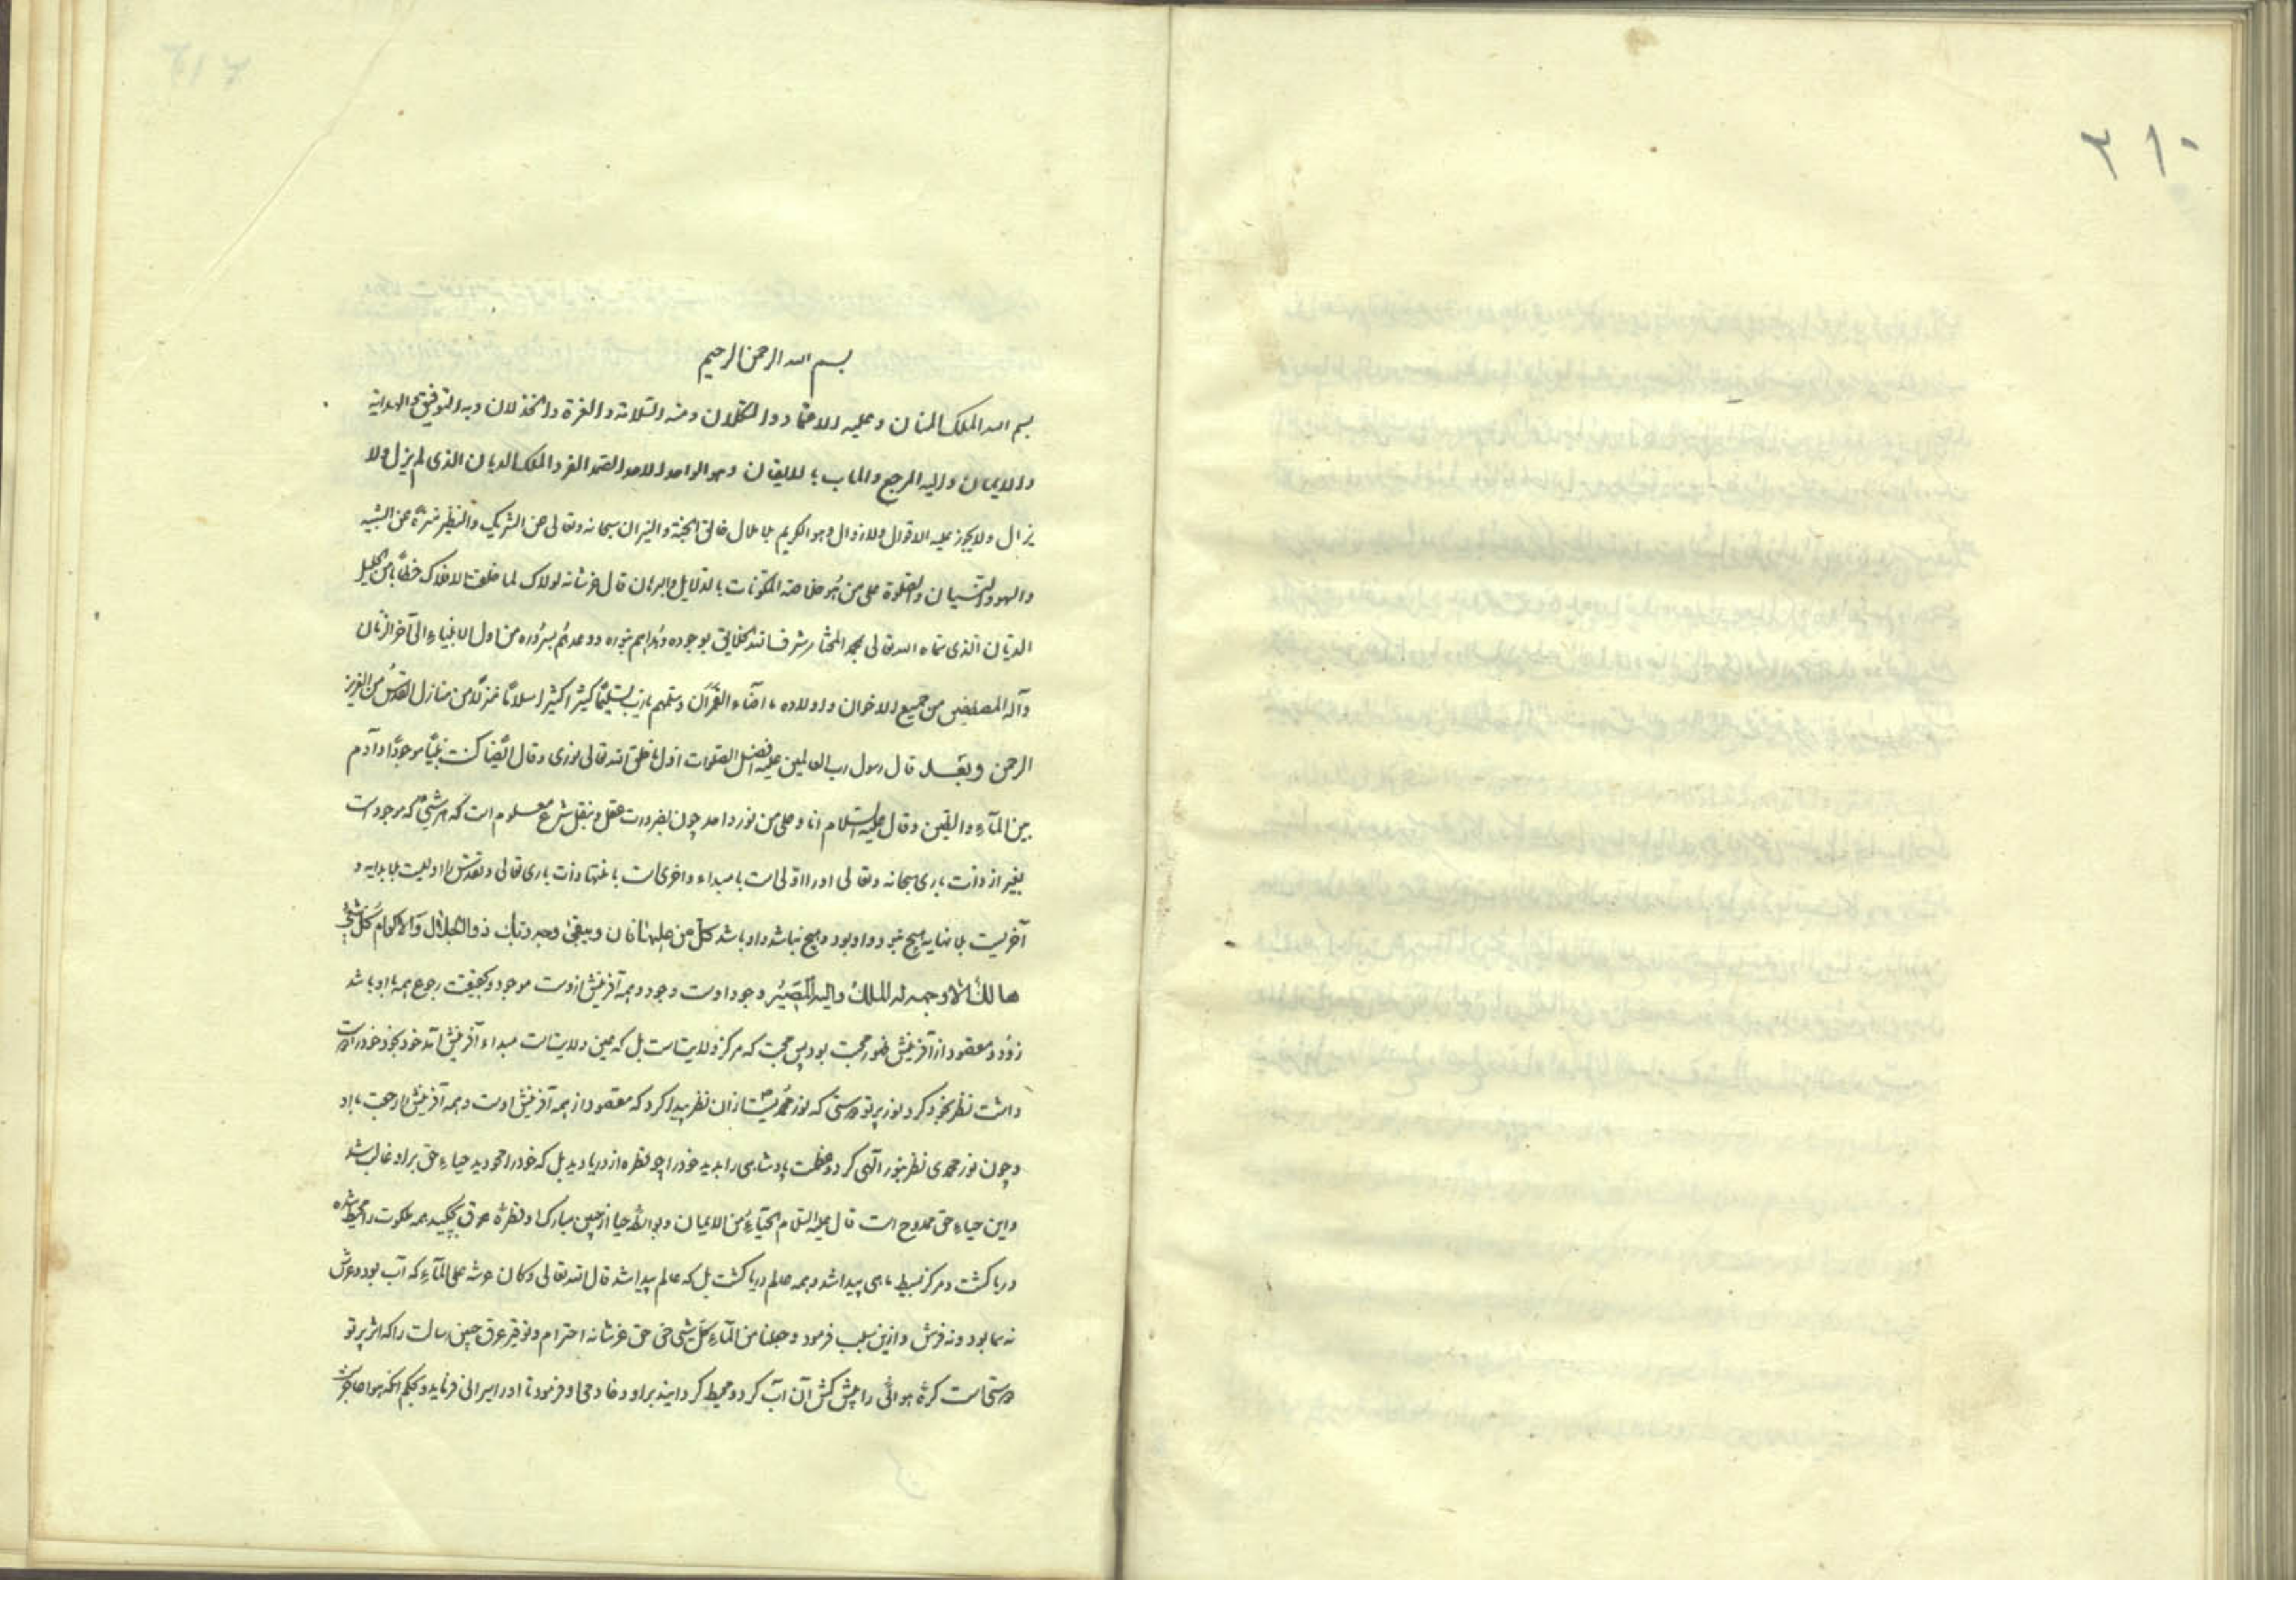 ۲۱۰
بسم الله الرحمن الرحیم
بسم الله الملک المنان و علیه الاعتماد و التکلان و منه السلامة و العزة و الخذلان و به التوفیق الهدایة
والایمان و الیه المرجع والمآب بالایقان وهو الواحد الاحد الصمد الفرد الملک الدیان الذی لم یزل ولا
یزال ولا یجوز علیه الاقوال ولا زوال وهو الکریم بلا ملال خالق الجنة والنیران سبحانه وتعالی عن الشریک والنظیر منزه عن الشبیه
والسهو والنسیان والصلوة علی من هو خلاصة المکونات بالدلایل والبرهان قال عز شانه لولاک لما خلقت الافلاک خطابا من الجلیل
الدیان الذی سماه الله تعالی بمحمد المختار شرف الله الخلایق بوجوده وهداهم بنوره ووعدهم بسروره من اول الانبیاء الی آخر الزمان
وآله المصطفین من جمیع الاخوان واولاده امناء القرآن وسلمهم یا رب تسلیما کثیرا کثیرا سلاما منزلا من منازل القدس من العزیز
الرحمن وبعد قال رسول رب العالمین علیه افضل الصلوات اول ما خلق الله تعالی نوری وقال ایضا کنت نبیا موجودا وآدم
بین المآء والطین وقال علیه السلام انا وعلی من نور واحد چون بضرورت عقل و بنقل شرع معلوم است که هر شیئ که موجود است
بغیر از ذات باری سبحانه وتعالی او را اولی است با مبداء و اخری است با منتها ذات باری تعالی و تقدس را اولیست بلا بدایه و
آخریست بلا نهایه هیچ نبود و او بود و هیچ نباشد و او باشد کل من علیها فان ویبقی وجه ربک ذو الجلال والاکرام کل شیئ
هالک الا وجهه له الملک والیه المصیر وجود اوست وجود و همه آفرینش ازوست موجود و بحقیقت رجوع همه با او باشد
زود و مقصود از آفرینش ظهور محبت بود پس محبت که مرکز ولایت است بل که عین ولایت است مبداء آفرینش آمد خود بخود خود را دوست
داشت نظر بخود کرد نور پرتو دوستی که نور محمدیست از ان نظر پیدا کرد که مقصود از همه آفرینش اوست و همه آفرینش را محبت با او
و چون نور محمدی نظر بنور آلهی کرد و عظمت پادشاهی را بدید خود را چو قطره از دریا دید بل که خود را محو دید حیاء حق بر او غالب شد
و این حیاء حق ممدوح است قال علیه السلام الحیاء من الایمان و بواسطه حیا از جبین مبارک او قطرۀ عرق بچکید همه ملکوت را محیط شده
دریا گشت و مرکز بسیط ماهی پیدا شد و همه عالم دریا گشت بل که عالم پیدا شد قال الله تعالی وکان عرشه علی المآء که آب بود و عرش
نه سما بود و نه فرش و ازین سبب فرمود وجعلنا من المآء کل شئ حی حق عز شانه احترام و توقیر عرق جبین رسالت را که اثر پرتو
دوستی است کرۀ هوائی را پیش کش آن آب کرد و محیط گردانید بر او و فرمود تا او را میرانی فرماید و بحکم آنکه هوا